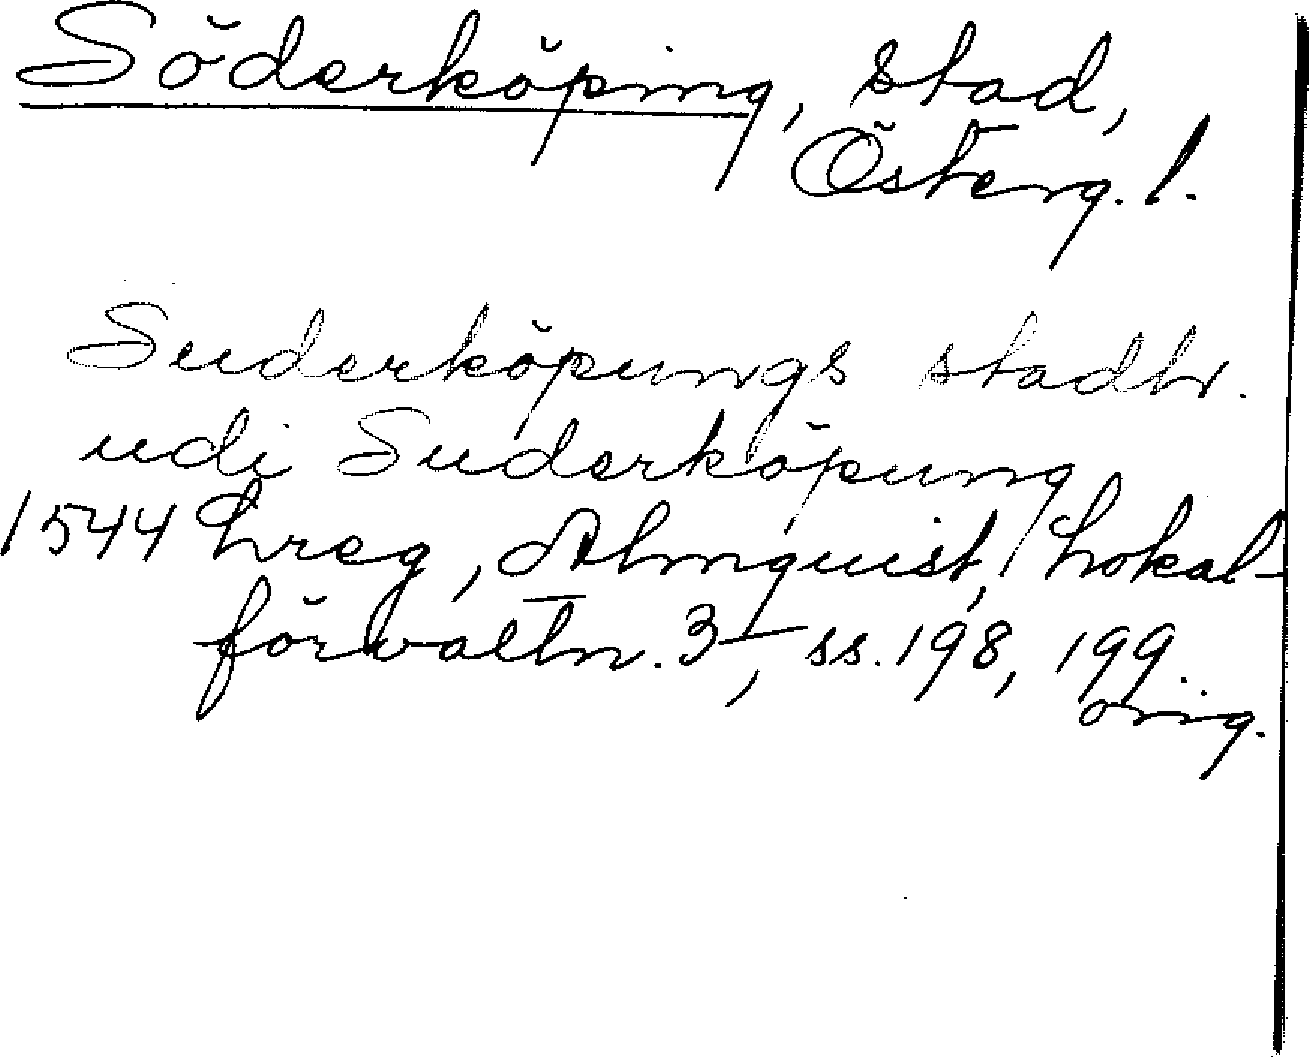 Söderköping, stad,
Österg. l.
Suderköpungs stadhr.
udi Suderköpung
1544 Lreg, Almquist, Lokal-
förvaltn. 3, ss. 198, 199.
orig.